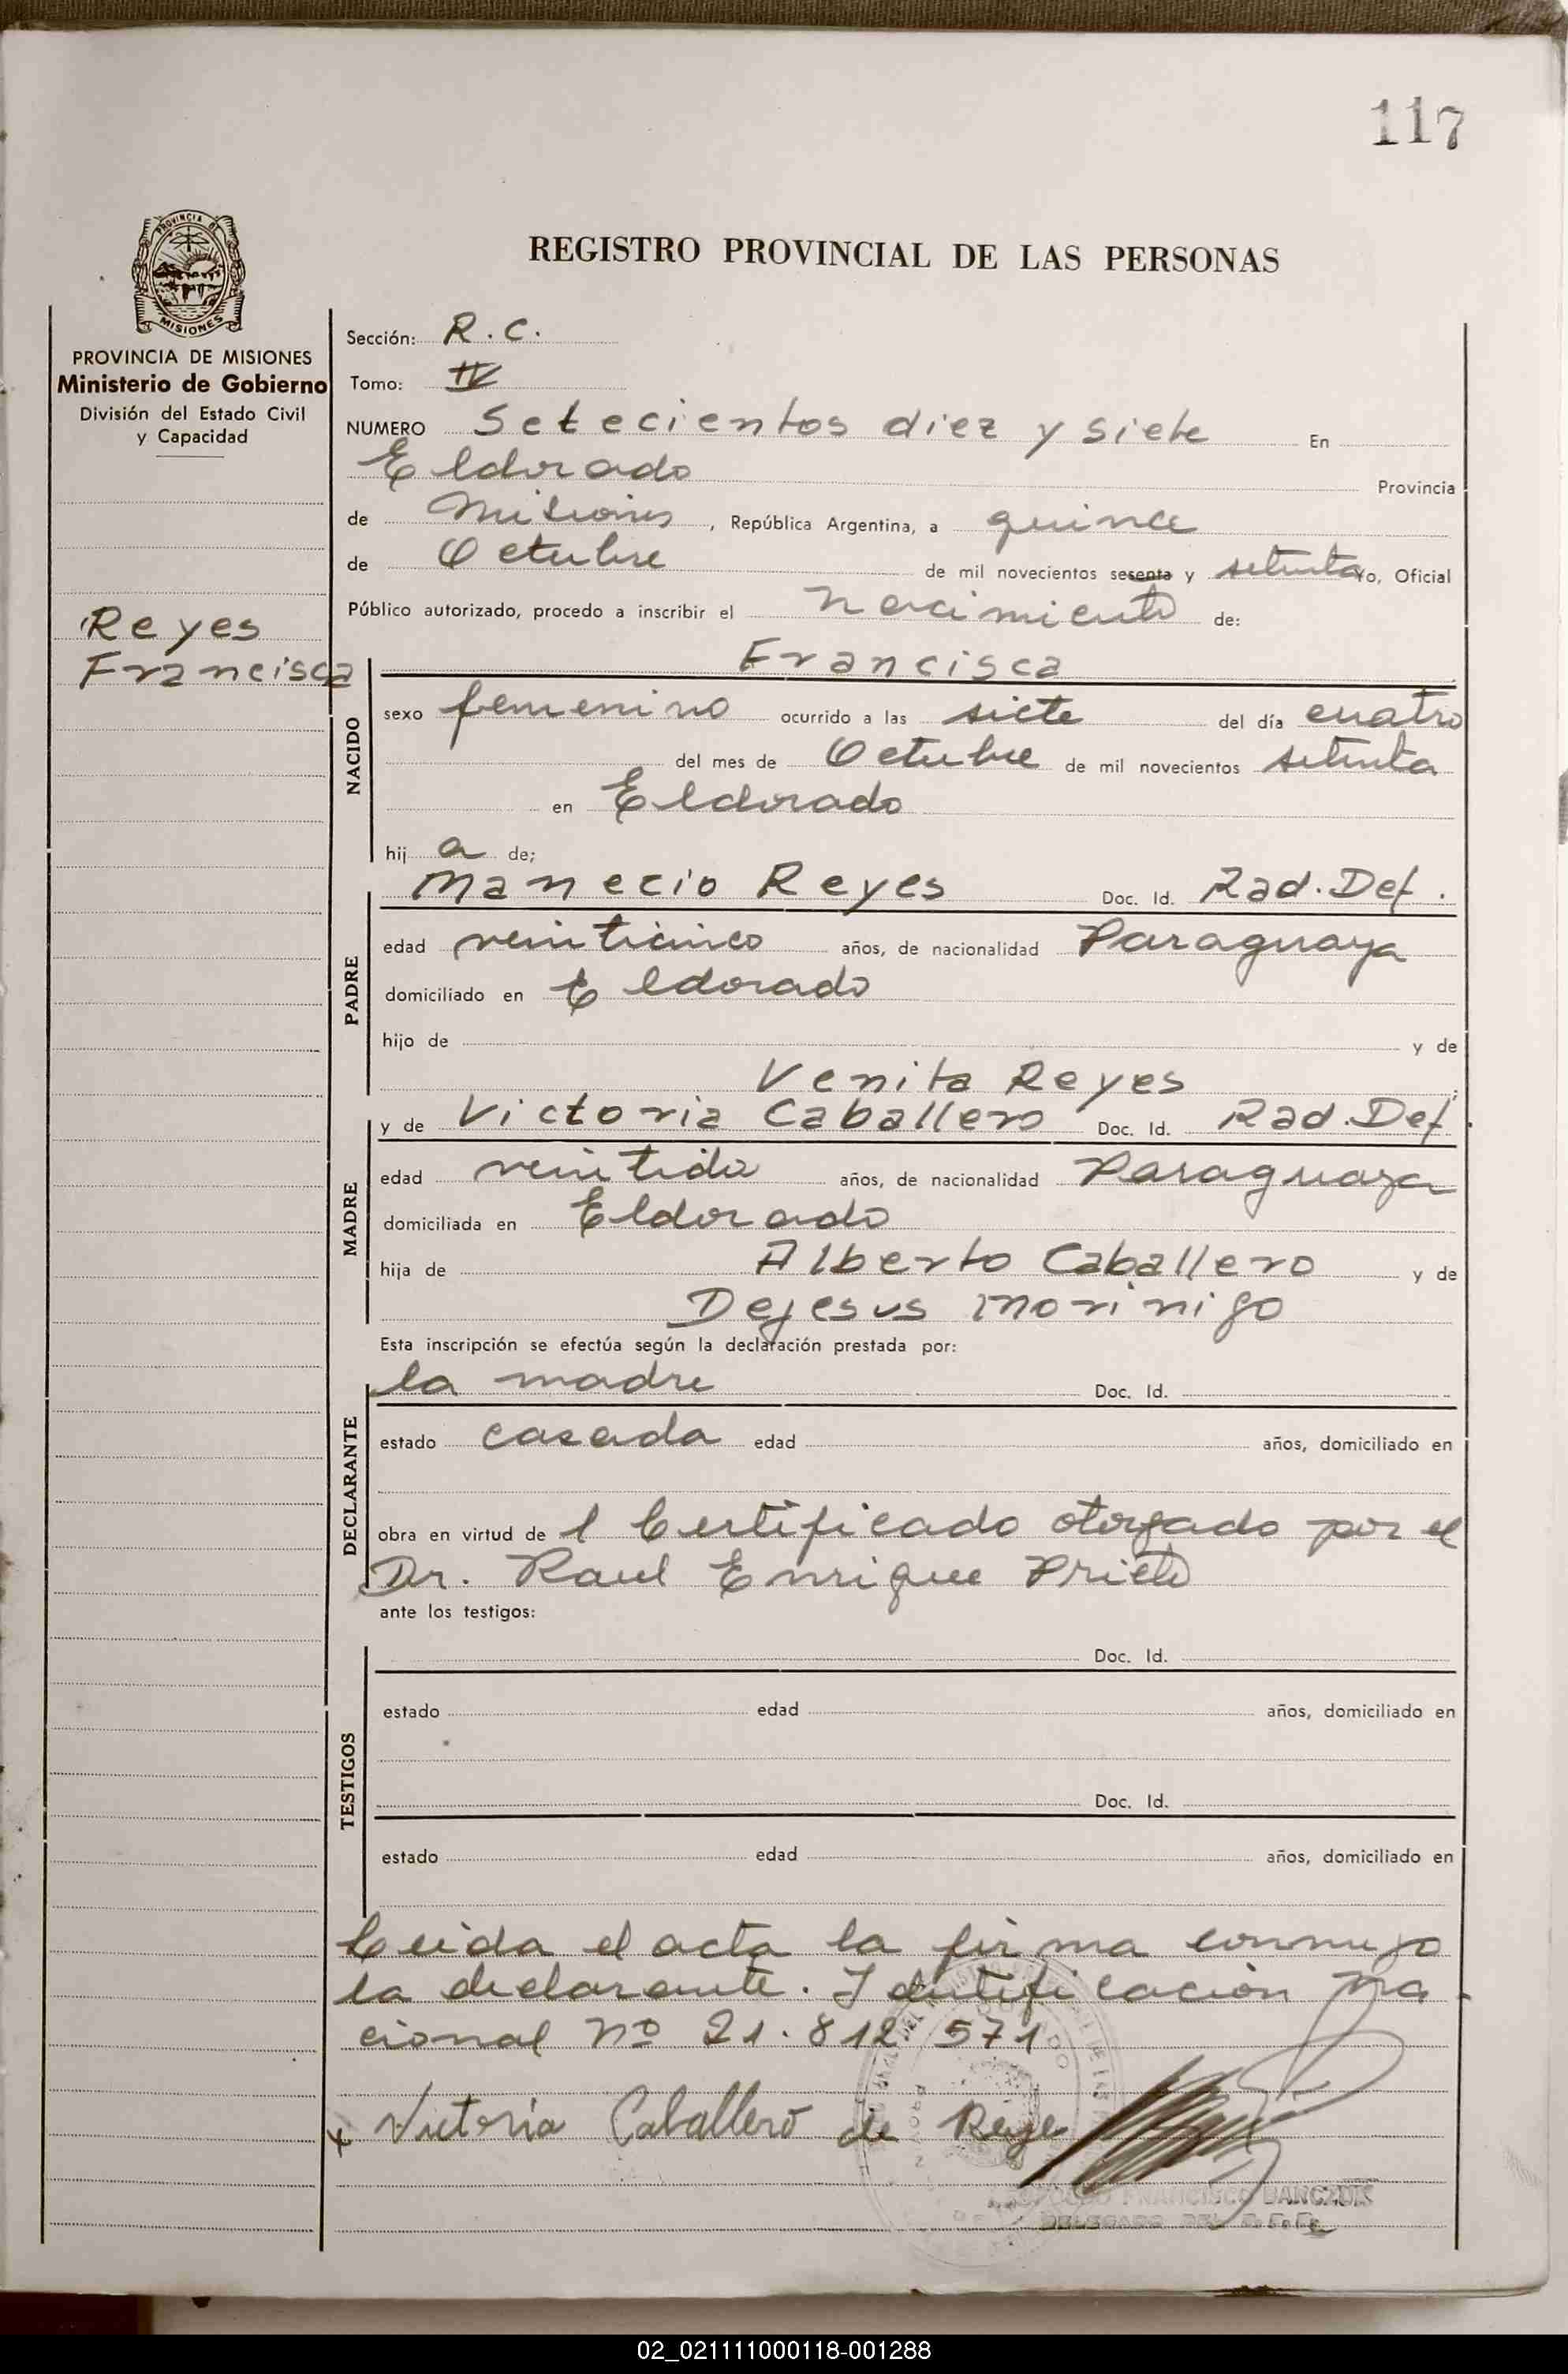 117
PROVINCIA DE
MISIONES
REGISTRO PROVINCIAL DE LAS PERSONAS
PROVINCIA DE MISIONES
Ministerio de Gobierno
División del Estado Civil
y Capacidad
Reyes
Francisca
Sección: R. C.
Tomo: IV
NUMERO Setecientos diez y siete En
Eldorado Provincia
de Misiones, República Argentina, a quince
de Octubre de mil novecientos sesenta y setenta yo, Oficial
Público autorizado, procedo a inscribir el nacimiento de:
Francisca
NACIDO
sexo femenino ocurrido a las siete del día cuatro
del mes de Octubre de mil novecientos setenta
en Eldorado
hij a de;
Manecio Reyes Doc. Id. Rad. Def.
PADRE
edad veinticinco años, de nacionalidad Paraguaya
domiciliado en Eldorado
hijo de y de
Venita Reyes
y de Victoria Caballero Doc. Id. Rad. Def.
MADRE
edad veintido años, de nacionalidad Paraguaya
domiciliada en Eldorado
hija de Alberto Caballero y de
Dejesus Morinigo
Esta inscripción se efectúa según la declaración prestada por:
la madre Doc. Id.
DECLARANTE
estado casada edad años, domiciliado en
obra en virtud de 1 Certificado otorgado por el
Dr. Raul Enrique Prieto
ante los testigos:
TESTIGOS
Doc. Id.
estado edad años, domiciliado en
Doc. Id.
estado edad años, domiciliado en
Leida el acta la firma conmigo
la declarante. Identificación Na-
cional Nº 21.812 571
x Victoria Caballero de Reye
FRANCISCO BANCZUK
DELEGADO DEL
02_021111000118-001288